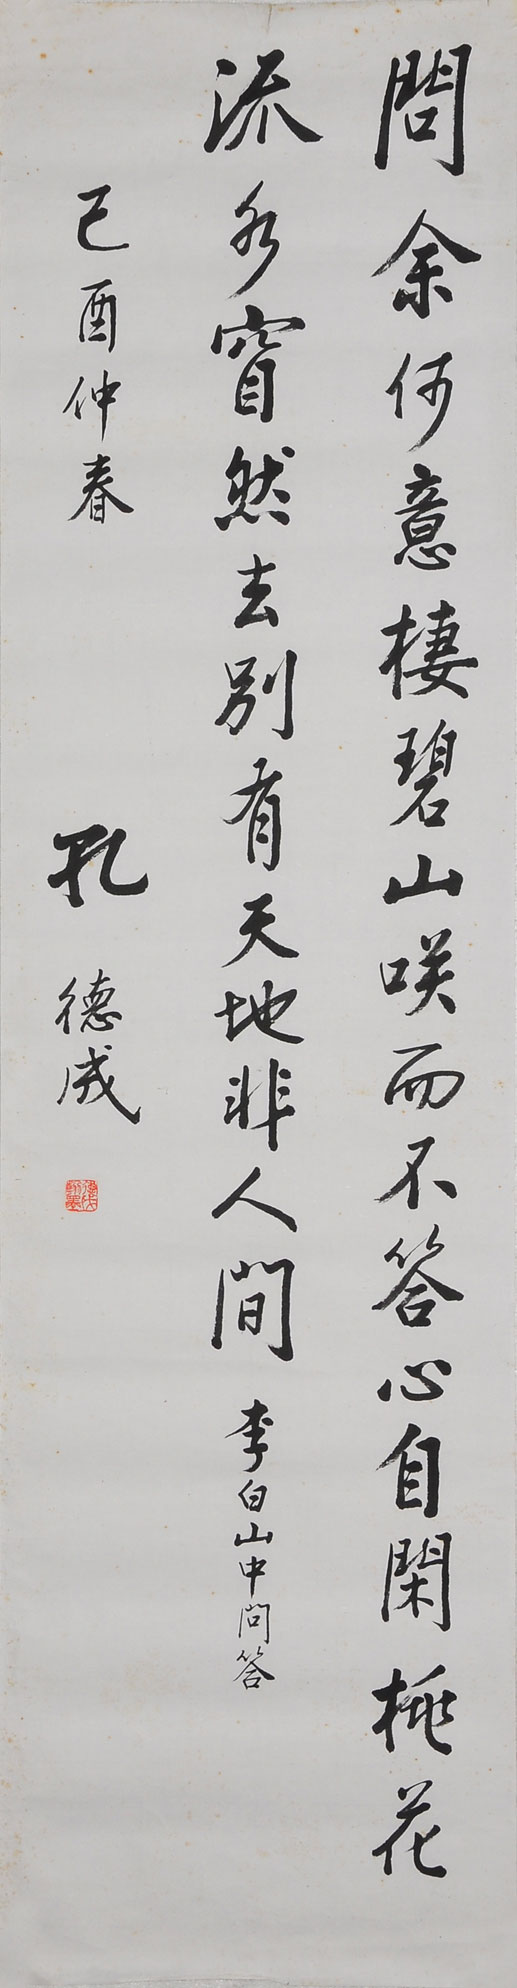 問余何意棲碧山咲而不答心自閑桃花
流水窅然去別有天地非人間 李白山中問答
己酉仲春 孔德成